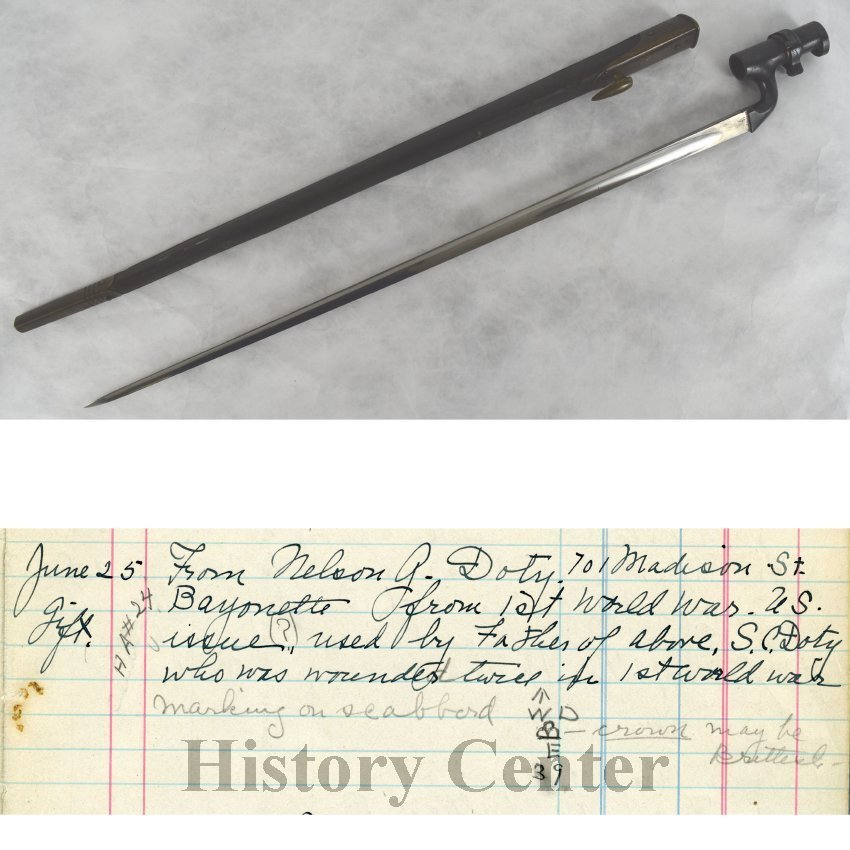 June 25. From Nelson A. Doty. 701 Madison St.
Gift. Bayonette from 1st World War. U.S.
HA#24
issue (?), used by Father of above, S.C. Doty
who was wounded twice in 1st World War
marking on scabbord W D
B — crown may be
III
39
History Center